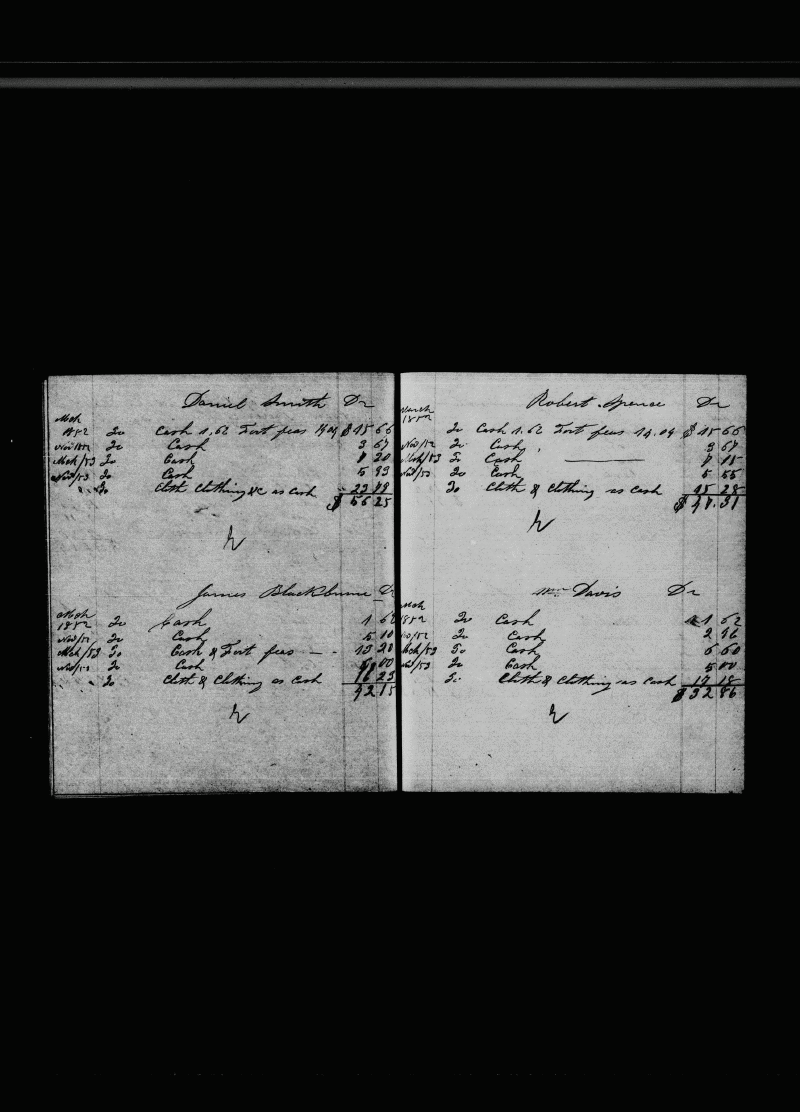 Daniel Smith Dr
Mch
1852 To Cash 1.62 Fort fees 14.04 $ 15 66
Nov 1852 To Cash 3 67
Mch/53 To Cash 7 20
Nov/53 To Cash 5 93
" " To Cloth Clothing &c as Cash 23 79
$ 56 25
James Blackburne Dr
Mch
1852 To Cash 1 62
Nov/52 To Cash 5 10
Mch/53 To Cash & Fort fees 13 20
Nov/53 To Cash 6 00
" To Cloth & Clothing as Cash 16 23
42 15
Robert Spence Dr
March
1852 To Cash 1.62 Fort fees 14.04 $ 15 66
Nov/52 To Cash 3 67
Mch/53 To Cash 7 15
Nov/53 To Cash 5 55
To Cloth & Clothing as Cash 15 28
$ 47.31
Wm Davis Dr
Mch
1852 To Cash 1 62
Nov/52 To Cash 2 46
Mch/53 To Cash 6 60
Nov/53 To Cash 5 00
To Cloth & Clothing as Cash 17 18
$ 32 86